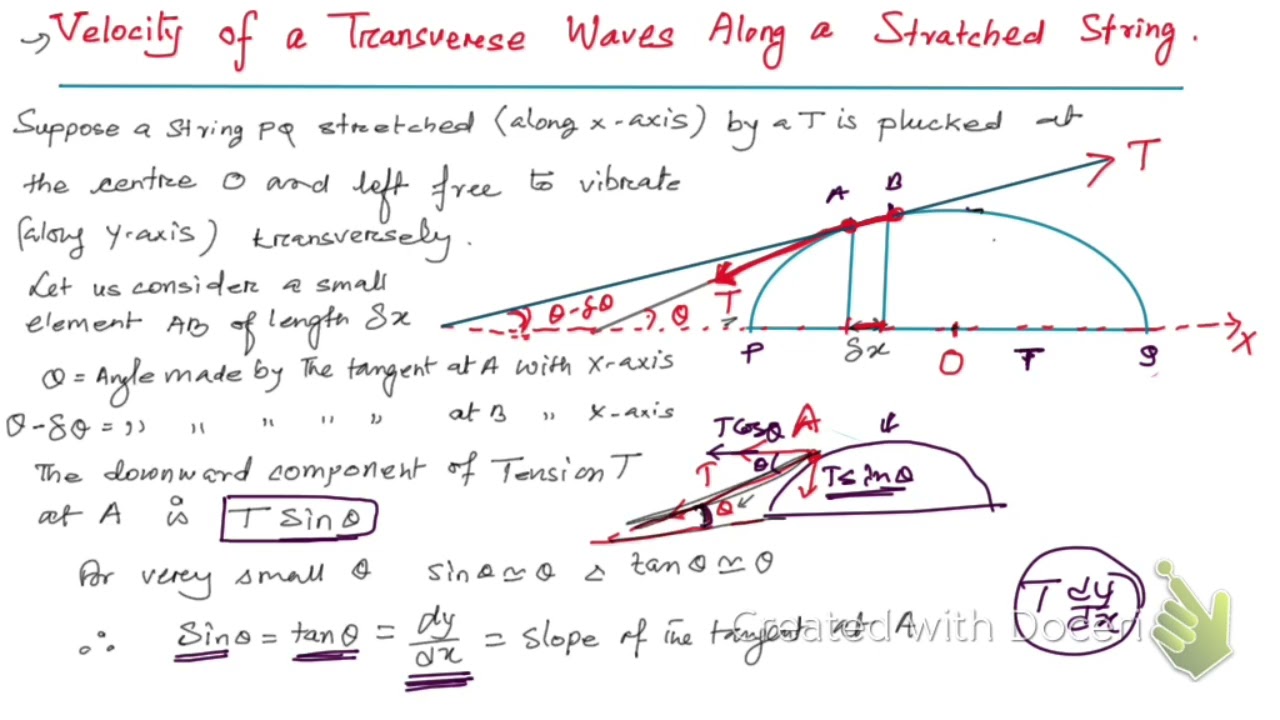 → Velocity of a Transverse Waves Along a Stratched String.
Suppose a string PQ stretched (along x-axis) by a T is plucked at
the centre O and left free to vibrate
(along Y-axis) transversely.
Let us consider a small
element AB of length δx
θ = Angle made by The tangent at A with X-axis
θ-δθ = ,, ,, ,, ,, at B ,, X-axis
The downward component of Tension T
at A is T Sinθ
For verey small θ sinθ ≃ θ & tanθ ≃ θ
∴ Sinθ = tanθ = dy/dx = slope of the tangent at A
A
B
T
T
θ-δθ
θ
P
δx
O
T
Q
X
Tcosθ
A
T
θ
θ
Tsinθ
T dy/dx
Created with Doceri